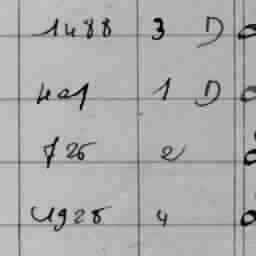 1488 3 D
401 1 D
725 2
4925 4